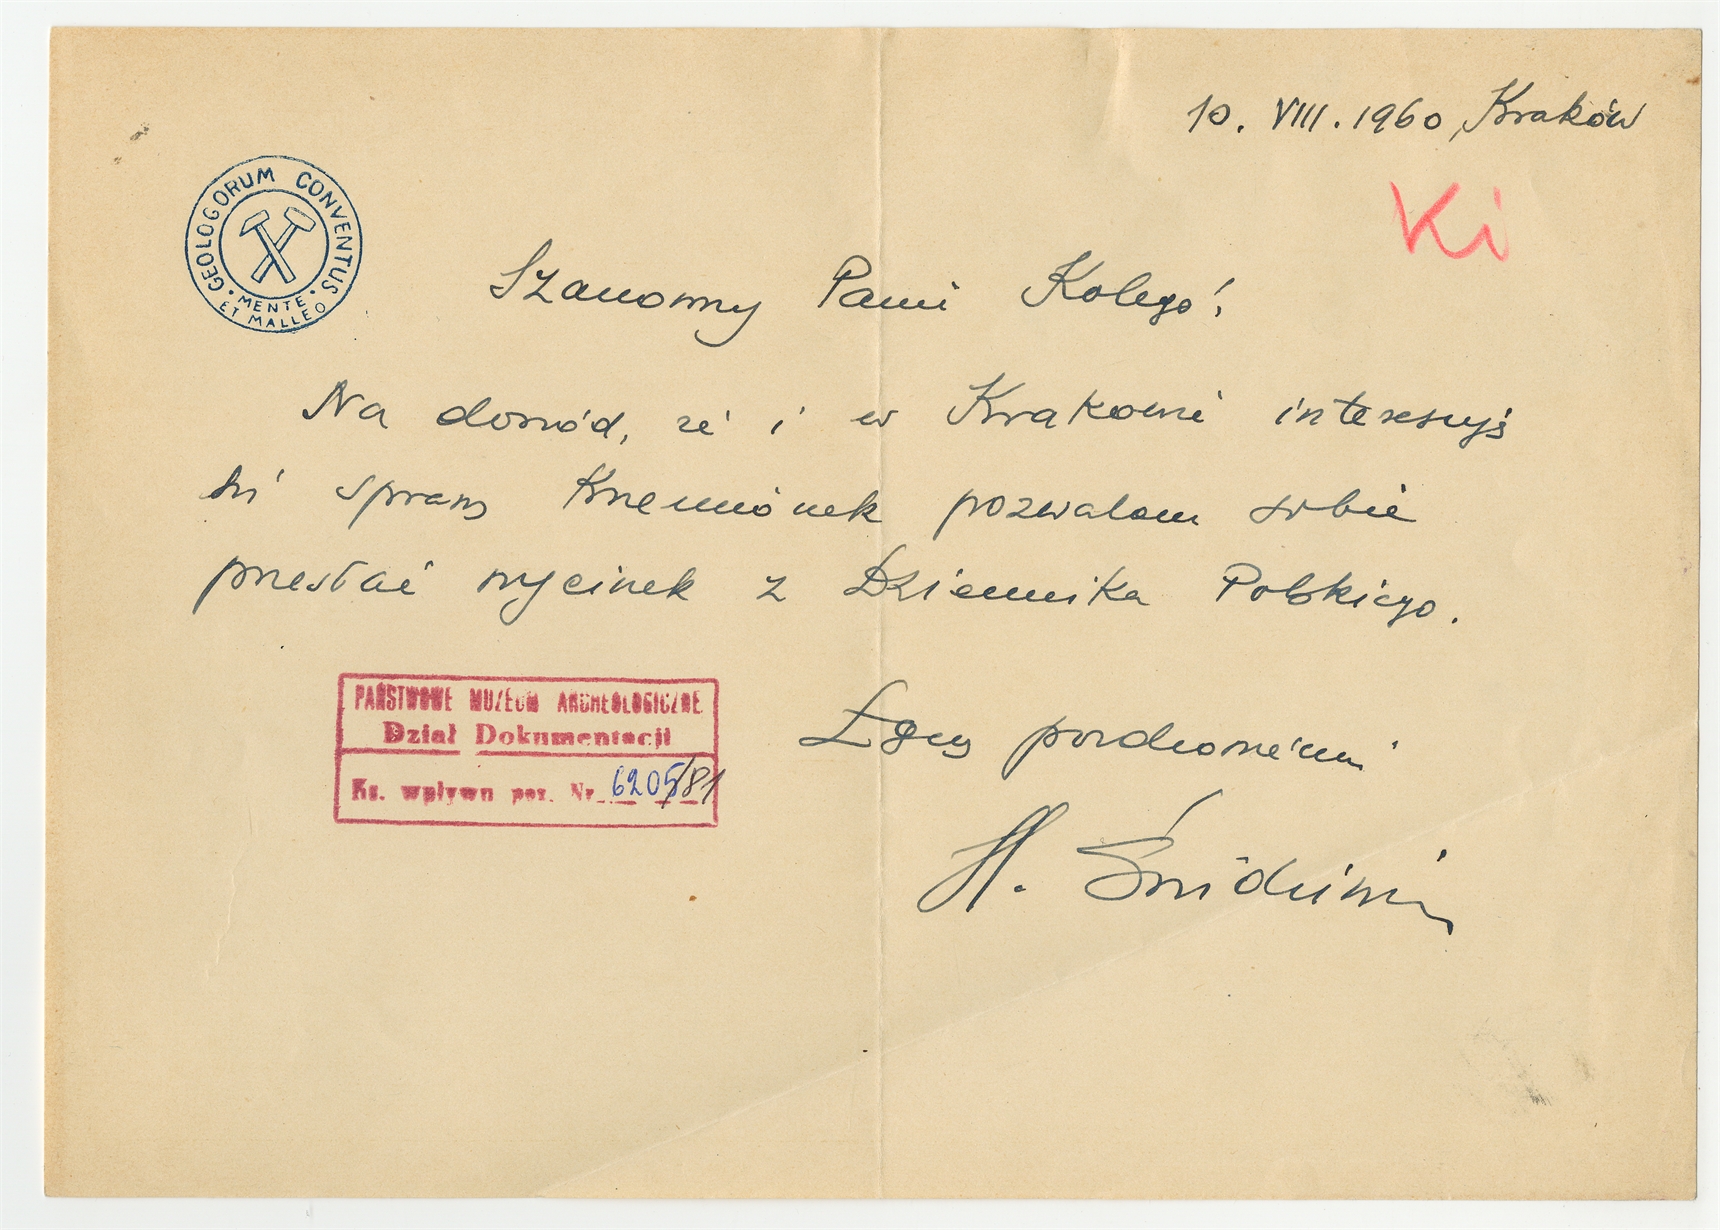 10. VIII. 1960, Kraków
Ki
GEOLOGORUM CONVENTUS
MENTE
ET MALLEO
Szanowny Panie Kolego!
Na dowód, że i w Krakowie interesują
się sprawą Krzemionek pozwalam sobie
przesłać wycinek z Dziennika Polskiego.
Łączę pozdrowienia
PAŃSTWOWE MUZEUM ARCHEOLOGICZNE
Dział Dokumentacji
Ks. wpływu poz. Nr 6205/81